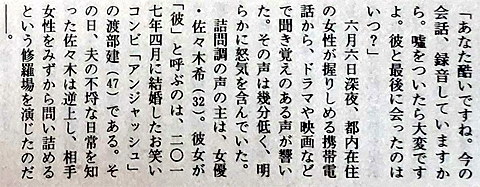 「あなた酷いですね。今の
会話、録音していますか
ら。嘘をついたら大変です
よ。彼と最後に会ったのは
いつ？」
六月六日深夜、都内在住
の女性が握りしめる携帯電
話から、ドラマや映画など
で聞き覚えのある声が響い
た。その声は幾分低く、明
らかに怒気を含んでいた。
詰問調の声の主は、女優
・佐々木希（32）。彼女が
「彼」と呼ぶのは、二〇一
七年四月に結婚したお笑い
コンビ「アンジャッシュ」
の渡部建（47）である。そ
の日、夫の不埒な日常を知
った佐々木は逆上し、相手
女性をみずから問い詰める
という修羅場を演じたのだ
――。